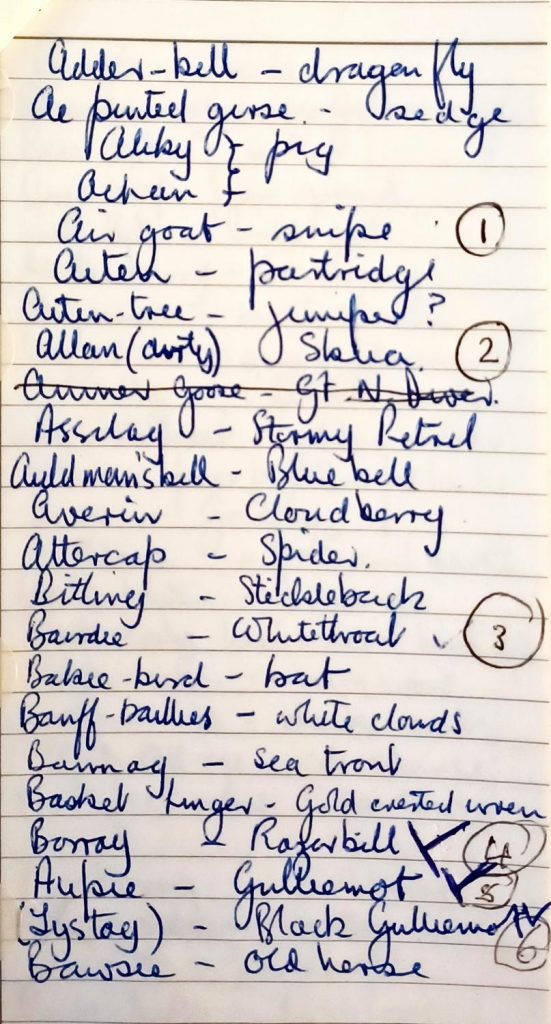 Adder-bell - dragonfly
Ae pinted gerse - sedge
Aikky } pig
Achan }
Air goat - snipe ①
Aiten - partridge
Aiten-tree - juniper ?
Allan (dirty) Skua. ②
Ammer goose - Gt. N. Diver.
Assilag - Stormy Petrel
Auld man's bell - Bluebell
Averin - Cloudberry
Attercap - Spider.
Bitling - Stickleback
Bairdie - Whitethroat ✓ ③
Bakie-bird - bat
Banff-baillies - white clouds
Bannag - sea trout
Basket hinger - Gold crested wren
Razorbill
Guillemot
(Tystag) - Black Guillemot ⑥
Bawsie - old horse